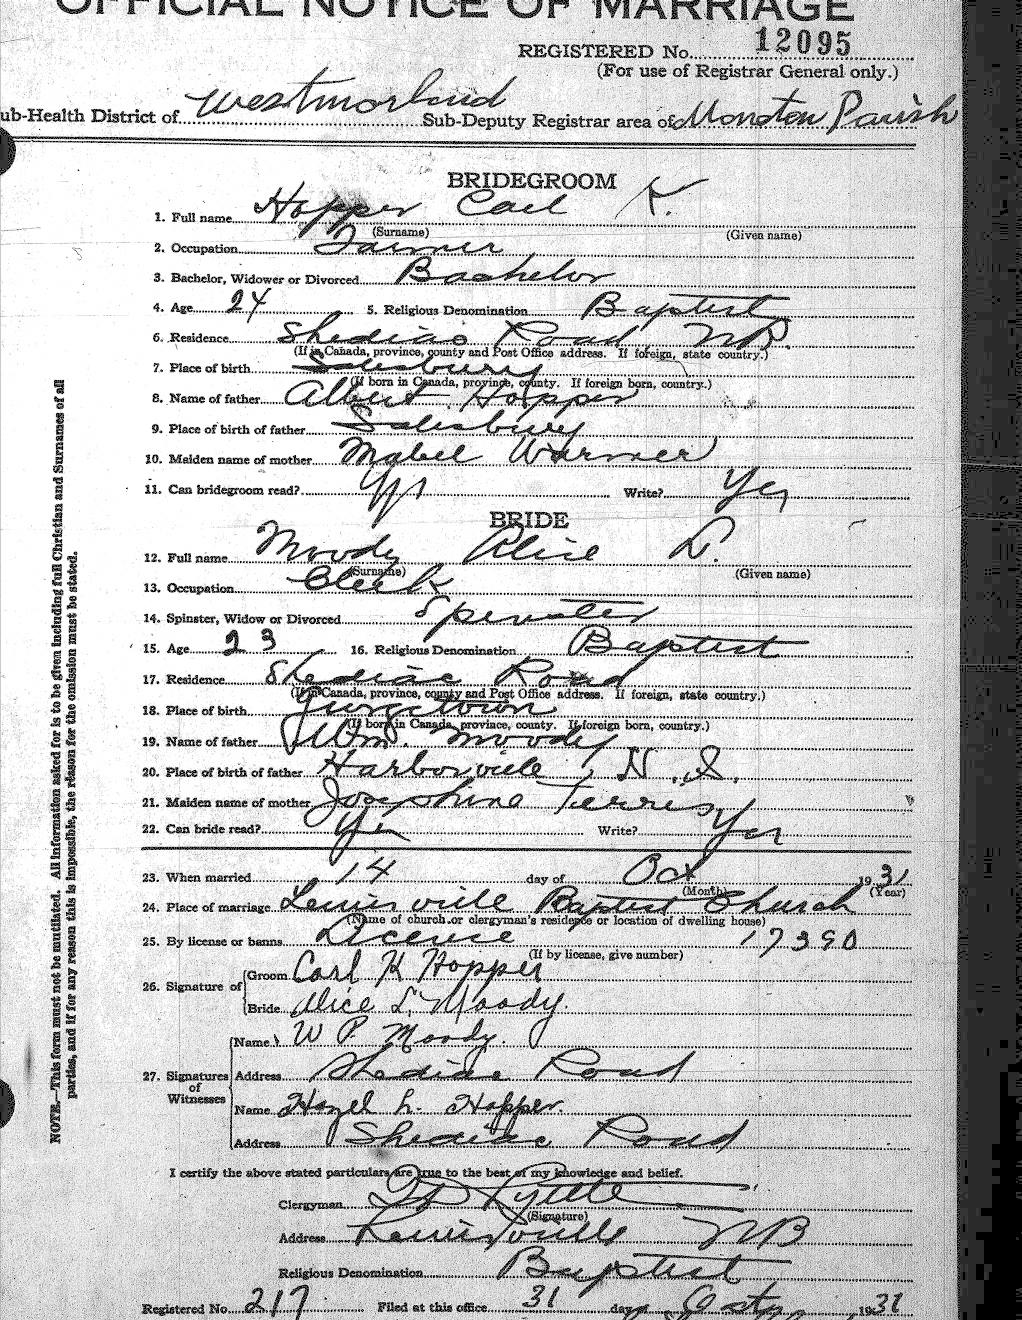 OFFICIAL NOTICE OF MARRIAGE
REGISTERED No. 12095
(For use of Registrar General only.)
ub-Health District of Westmorland Sub-Deputy Registrar area of Moncton Parish
BRIDEGROOM
1. Full name Hopper Carl K.
(Surname) (Given name)
2. Occupation Farmer
3. Bachelor, Widower or Divorced Bachelor
4. Age 24 5. Religious Denomination Baptist
6. Residence Shediac Road N.B.
(If in Canada, province, county and Post Office address. If foreign, state country.)
7. Place of birth Salisbury
(If born in Canada, province, county. If foreign born, country.)
8. Name of father Albert Hopper
9. Place of birth of father Salisbury
10. Maiden name of mother Mabel Warmer
11. Can bridegroom read? Yes Write? Yes
BRIDE
12. Full name Moody Alice L.
(Surname) (Given name)
13. Occupation Clerk
14. Spinster, Widow or Divorced Spinster
15. Age 23 16. Religious Denomination Baptist
17. Residence Shediac Road
(If in Canada, province, county and Post Office address. If foreign, state country.)
18. Place of birth
(If born in Canada, province, county. If foreign born, country.)
19. Name of father Wm. Moody
20. Place of birth of father Harborville, N.S.
21. Maiden name of mother Josephine Terris
22. Can bride read? Yes Write? Yes
23. When married 14 day of Oct 1931
(Month) (Year)
24. Place of marriage Lewisville Baptist Church
(Name of church or clergyman's residence or location of dwelling house)
25. By license or banns Licence 17390
(If by license, give number)
26. Signature of
Groom Carl K Hopper
Bride Alice L. Moody.
27. Signatures of Witnesses
Name W P. Moody.
Address Shediac Road
Name Hazel L. Hopper.
Address Shediac Road
I certify the above stated particulars are true to the best of my knowledge and belief.
Clergyman
(Signature)
Address Lewisville NB
Religious Denomination Baptist
Registered No. 217 Filed at this office 31 day of 1931
NOTE.—This form must not be mutilated. All information asked for is to be given including full Christian and Surnames of all
parties, and if for any reason this is impossible, the reason for the omission must be stated.